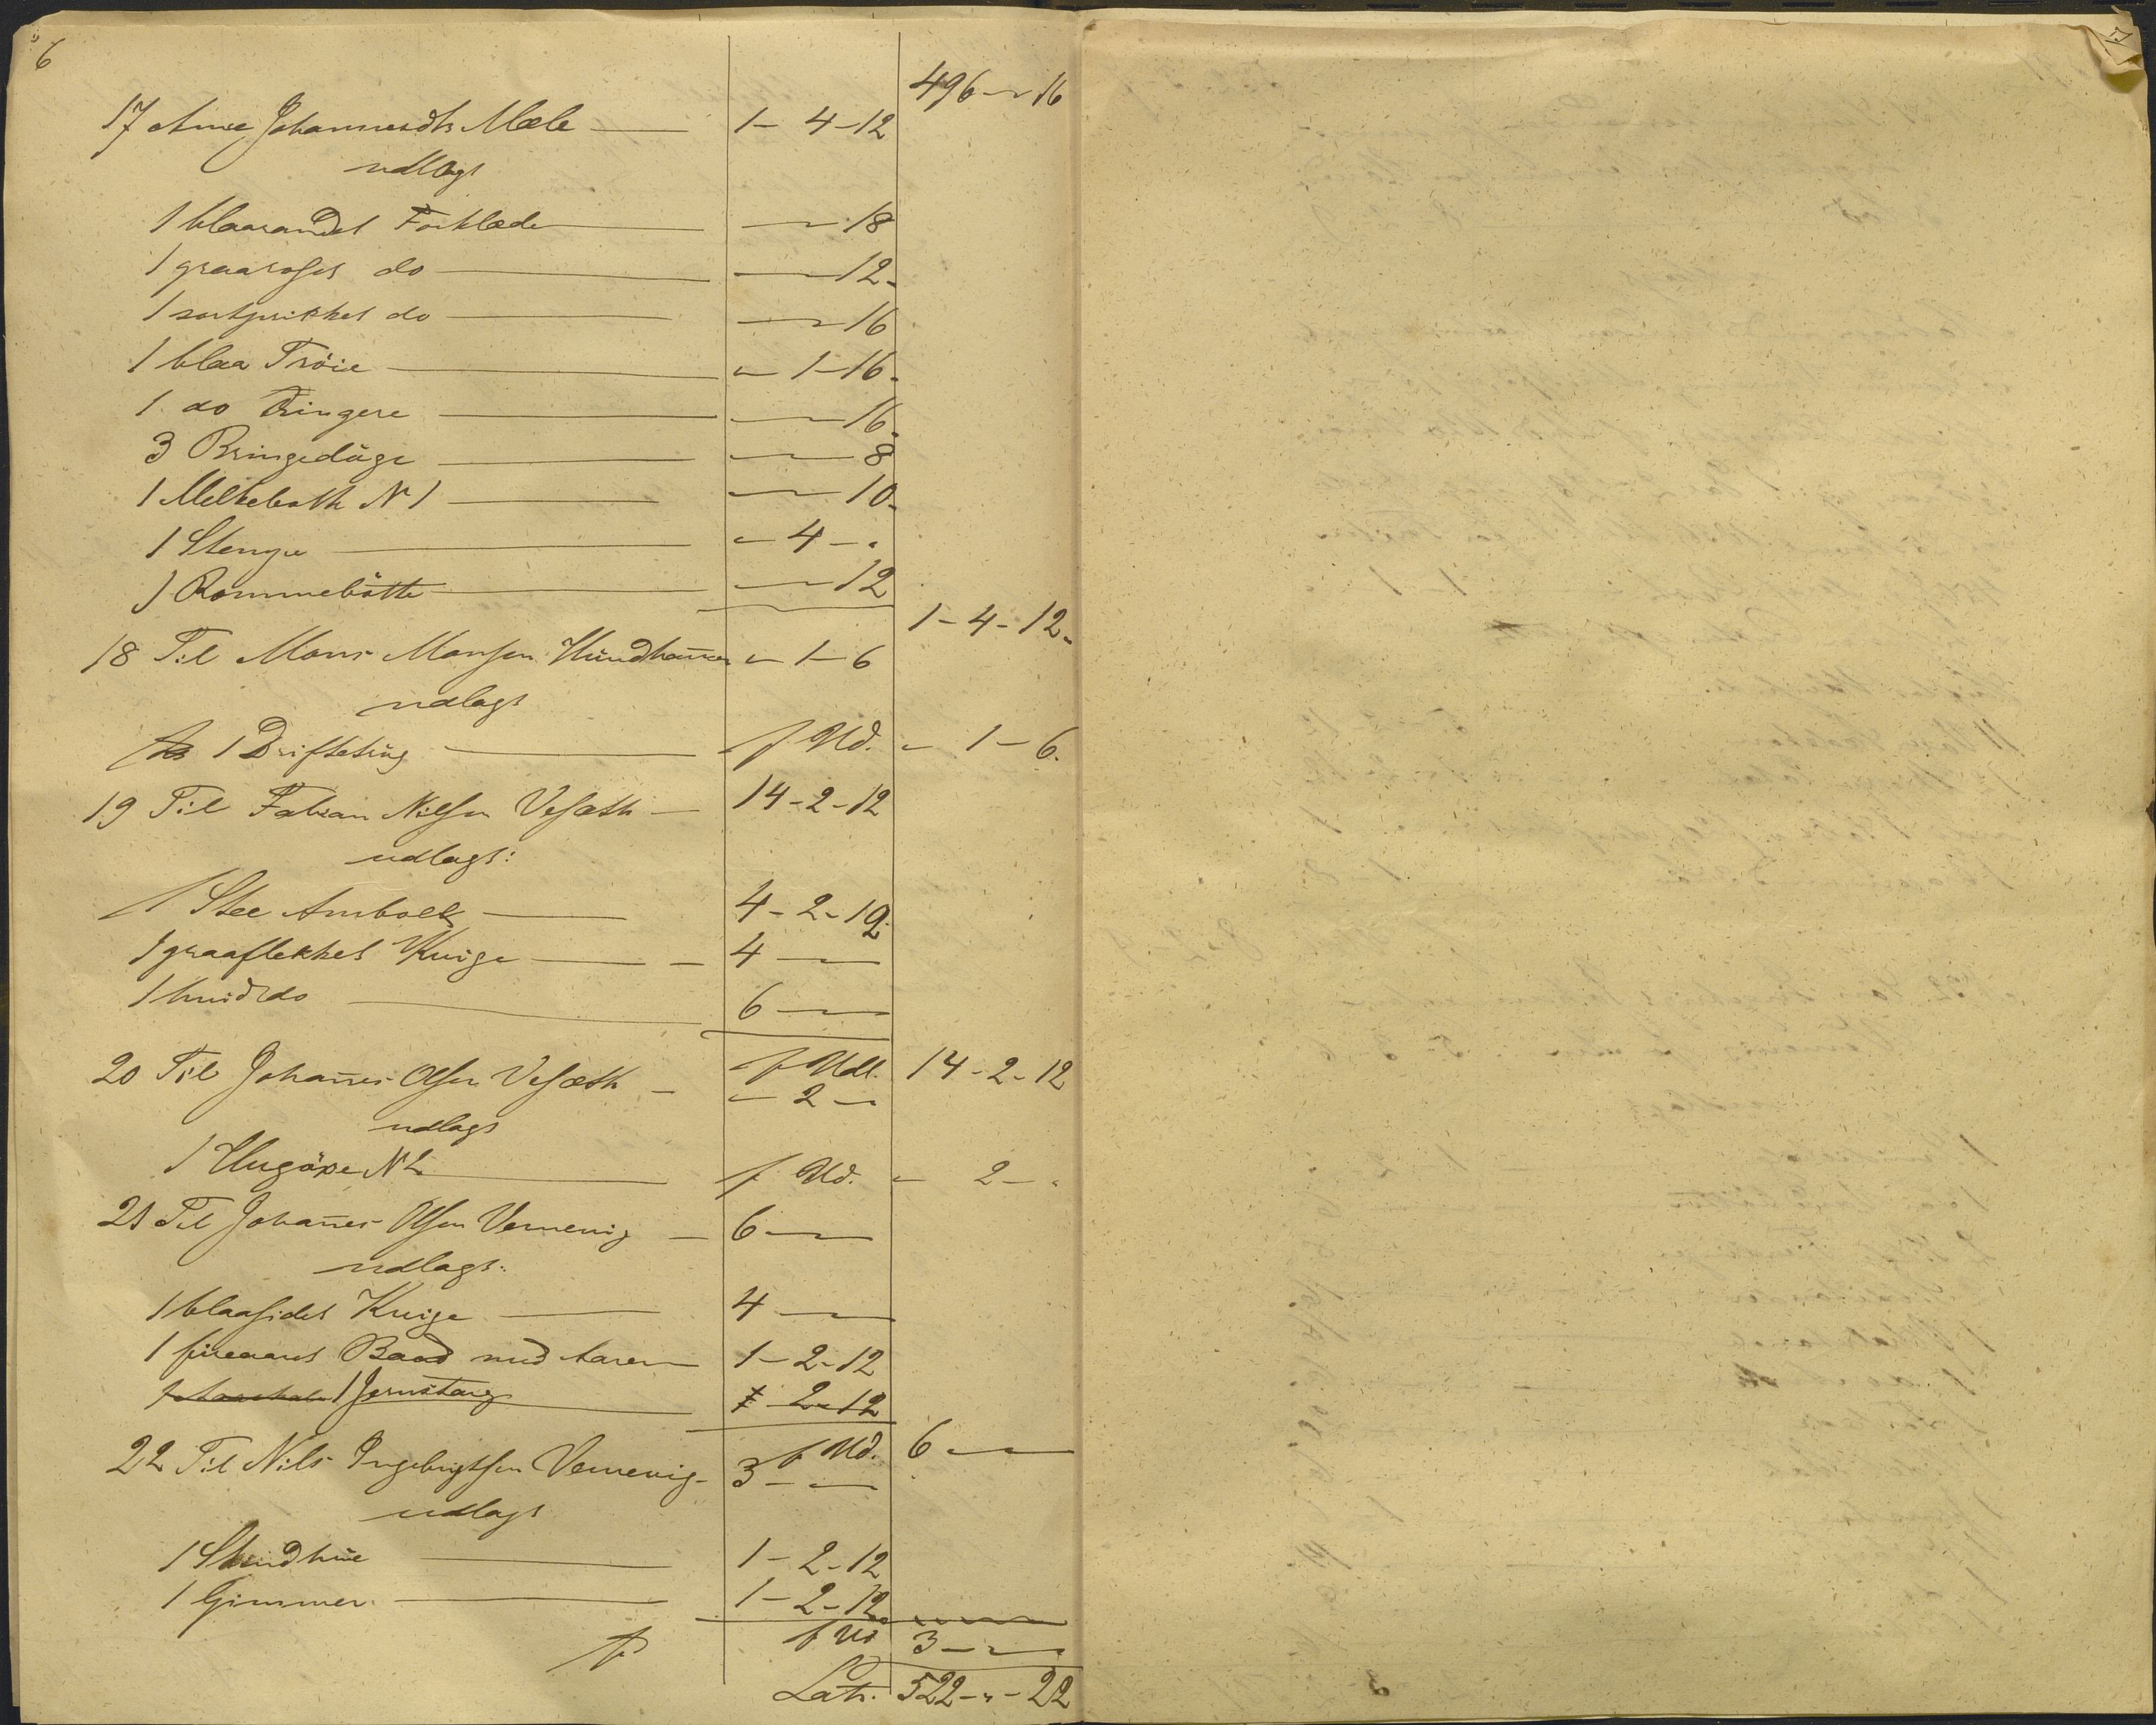 6
496 - " - 16
17 Anne Johannesdtr Mæle — 1 - 4 - 12
udlagt
1 blaarandet Forklæde — " - " - 18
1 graaroset do — " - " - 12
1 sortprikket do — " - " - 16
1 blaa Tröie — " - 1 - 16
1 do Ringere — " - " - 16
3 Bringedüge — " - " - 8
1 Melkebøtte N 1 — " - " - 10
1 Stenge — " - 4 - "
1 Rømmebötte — " - " - 12
1 - 4 - 12
18 Til Mons Monsen Hündhammer " - 1 - 6
udlagt
1 Driftetrüg — f Ud. " - 1 - 6
19 Til Fabian Nilsen Vesæth — 14 - 2 - 12
udlagt:
1 Stee Ambolt — 4 - 2 - 12
1 graaflekket Kvige — 4 - " - "
1 hvid do — 6 - " - "
f Udl. 14 - 2 - 12
20 Til Johañes Olsen Vesæth — " - 2 - "
udlagt
1 Hugöxe N 2 — f Ud. " - 2 - "
21 Til Johañes Olsen Vernevig — 6 - " - "
udlagt:
1 blaasidet Kvige — 4 - " - "
1 fireaaret Baad med Aarer — 1 - 2 - 12
1 Jernstang — 2 - 12
f Ud. 6 - " - "
22 Til Nils Ingebrigtsen Vernevig — 3 - " - "
udlagt
1 Skindhüe — 1 - 2 - 12
1 Gimmer — 1 - 2 - 12
f Ud 3 - " - "
Latr. 522 - " - 22